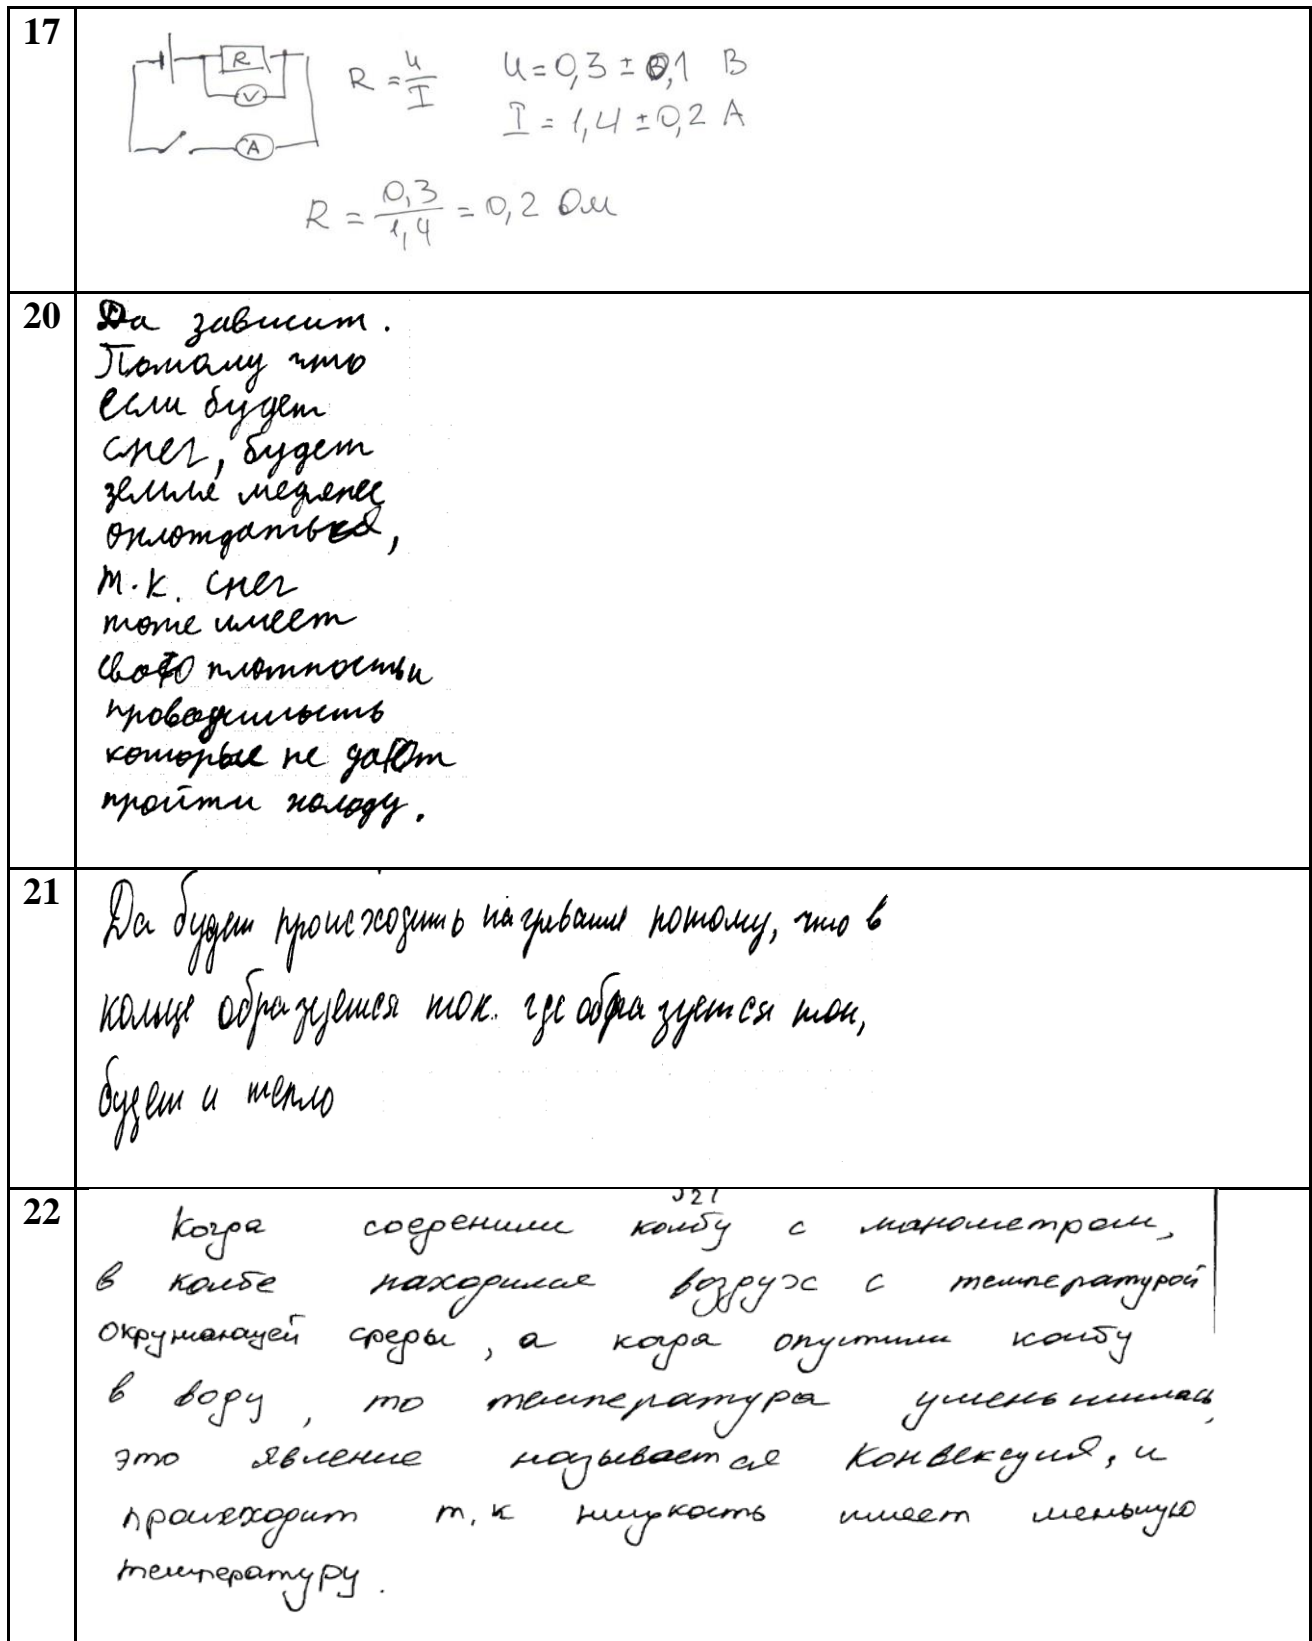 17
R
V
A
R = U/I
U = 0,3 ± 0,1 В
I = 1,4 ± 0,2 А
R = 0,3/1,4 = 0,2 Ом
20
Да зависит.
Потому что
если будет
снег, будет
земле медленее
охлождаться,
т.к. снег
тоже имеет
свою плотность и
проводимость
которые не дают
пройти холоду.
21
Да будет происходить нагревание потому, что в
кольце образуется ток. где образуется ток,
будет и тепло
22
Когда соеденили колбу с манометром,
в колбе находился воздух с температурой
окружающей среды, а когда опустили колбу
в воду, то температура уменьшилась,
это явление называется конвекция, и
происходит т.к жидкость имеет меньшую
температуру.